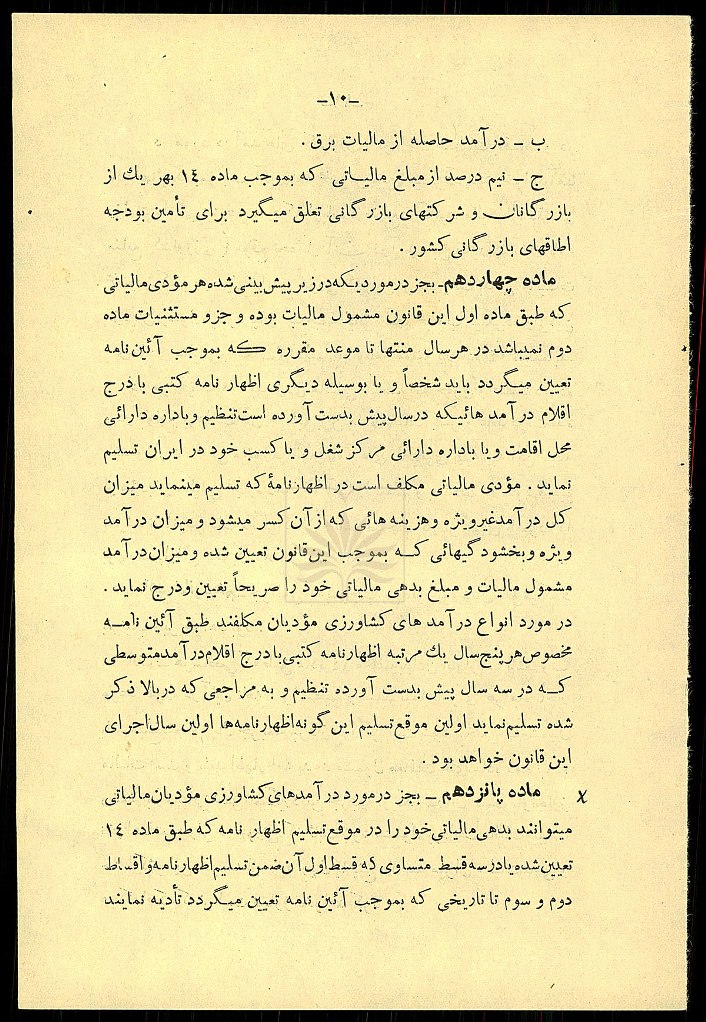 -۱۰-
ب - درآمد حاصله از مالیات برق .
ج - نیم درصد از مبلغ مالیاتی که بموجب ماده ۱۴ بهر یك از
بازرگانان و شرکتهای بازرگانی تعلق میگیرد برای تأمین بودجه
اطاقهای بازرگانی کشور .
ماده چهاردهم- بجز درموردیکه درزیر پیش بینی شده هر مؤدی مالیاتی
که طبق ماده اول این قانون مشمول مالیات بوده و جزو مستثنیات ماده
دوم نمیباشد در هرسال منتها تا موعد مقرره که بموجب آئین نامه
تعیین میگردد باید شخصاً و یا بوسیله دیگری اظهار نامه کتبی با درج
اقلام درآمد هائیکه درسال پیش بدست آورده است تنظیم و باداره دارائی
محل اقامت ویا باداره دارائی مرکز شغل و یا کسب خود در ایران تسلیم
نماید . مؤدی مالیاتی مکلف است در اظهارنامۀ که تسلیم مینماید میزان
کل درآمد غیرویژه وهزینه هائی که از آن کسر میشود و میزان درآمد
ویژه وبخشودگیهائی که بموجب این قانون تعیین شده ومیزان درآمد
مشمول مالیات و مبلغ بدهی مالیاتی خود را صریحاً تعیین ودرج نماید .
در مورد انواع درآمد های کشاورزی مؤدیان مکلفند طبق آئین نامه
مخصوص هر پنج سال یك مرتبه اظهارنامه کتبی با درج اقلام درآمد متوسطی
که در سه سال پیش بدست آورده تنظیم و به مراجعی که دربالا ذکر
شده تسلیم نماید اولین موقع تسلیم این گونه اظهارنامه ها اولین سال اجرای
این قانون خواهد بود .
x ماده پانزدهم - بجز درمورد درآمدهای کشاورزی مؤدیان مالیاتی
میتوانند بدهی مالیاتی خود را در موقع تسلیم اظهار نامه که طبق ماده ۱۴
تعیین شده یا درسه قسط متساوی که قسط اول آن ضمن تسلیم اظهارنامه و اقساط
دوم و سوم تا تاریخی که بموجب آئین نامه تعیین میگردد تأدیه نمایند